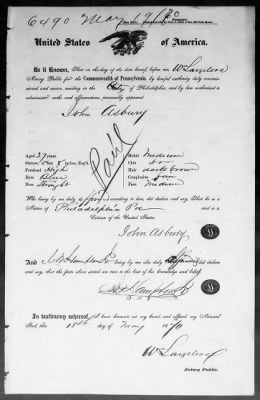 6490 May 19/70
United States of America.
Be it Known, That on the day of the date hereof before me Wm
Notary Public for the Commonwealth of Pennsylvania, by lawful authority duly commissioned
and sworn, residing in the City of Philadelphia, and by law authorized to
administer oaths and affirmations, personally appeared
John Asbury
Aged 37 years
Stature, 5 feet inches, Eng.
Forehead High
Eyes Blue
Nose Straight
Mouth Medium
Chin
Hair dark brown
Complexion
Face Medium
Who being by me duly according to law, did declare and say, That he is a
Native of Philadelphia Pa and is a
Citizen of the United States.
John Asbury
And being by me also duly affirmed
did say, that the facts above stated are true to the best of his knowledge and belief.
In testimony whereof, I have hereunto set my hand and affixed my Notarial
Seal, this 18th day of May 1870
Wm
Notary Public.